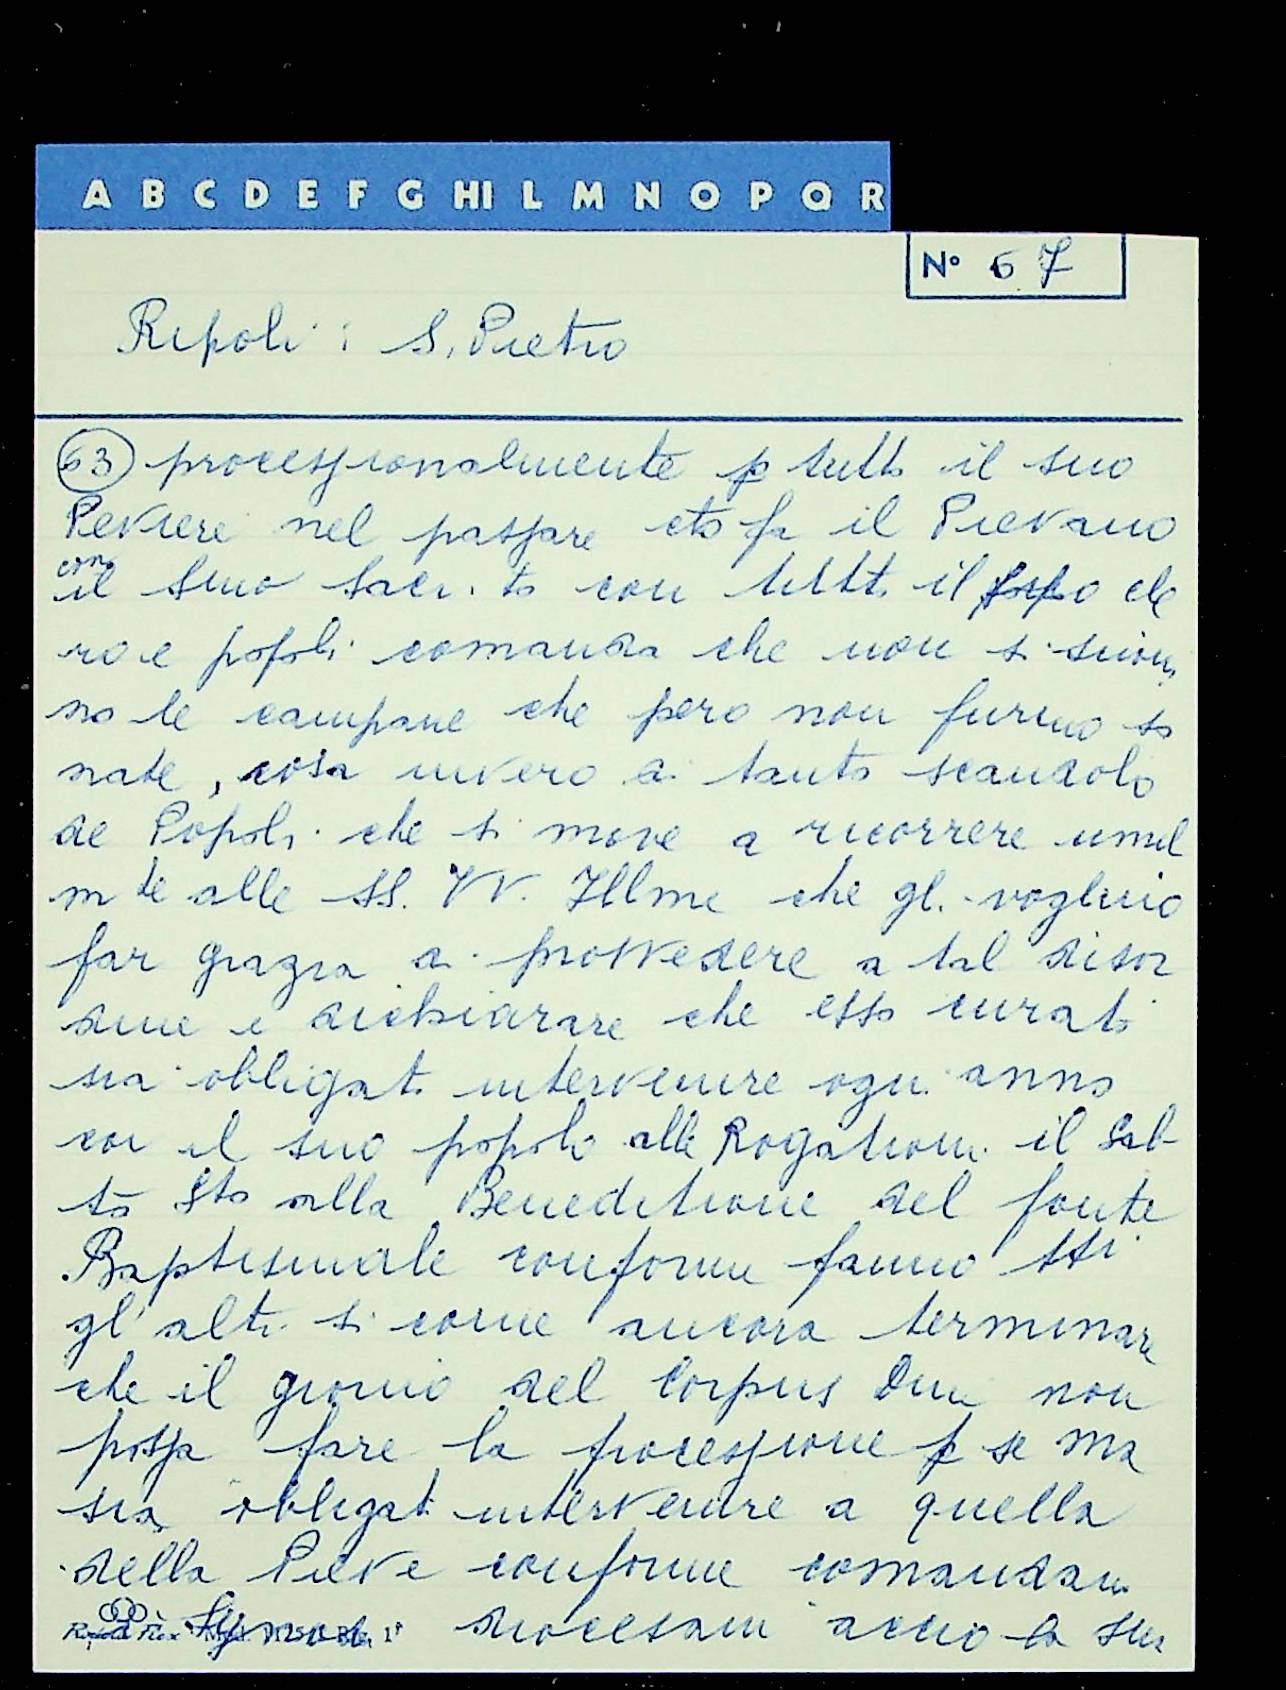 A B C D E F G HI L M N O P Q R
N° 67
Ripoli: S. Pietro
63 processionalmente p tutto il suo
Peviere nel passare cto fa il Pievano
con
il Smo Sacr.to con tutto il suo cle
ro e popoli comanda che non si suoni
no le campane che pero non furno so
nate, cosa invero di tanto scandolo
de Popoli che si move a ricorrere umil
mte alle SS. VV. Illme che gli voglino
far grazia di provvedere a tal disor
dine e dichiarare che esso curato
sia obligato intervenire ogni anno
con il suo popolo alle Rogationi il Sab
to Sto alla Beneditione del fonte
Baptismale conforme fanno tti
gl'altri si come ancora terminare
che il giorno del Corpus Dni non
possa fare la processione p se ma
sia obligato intervenire a quella
della Pieve conforme comandano
Synodi diocesani accio la sua